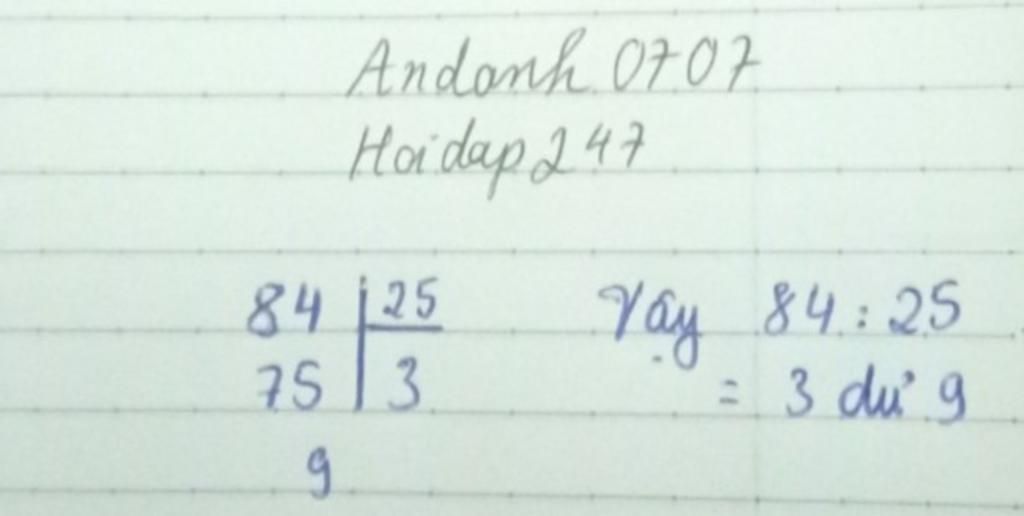 Andanh 0707
Hoidap247
84 | 25
75 | 3
9
Vậy 84 : 25
= 3 dư 9